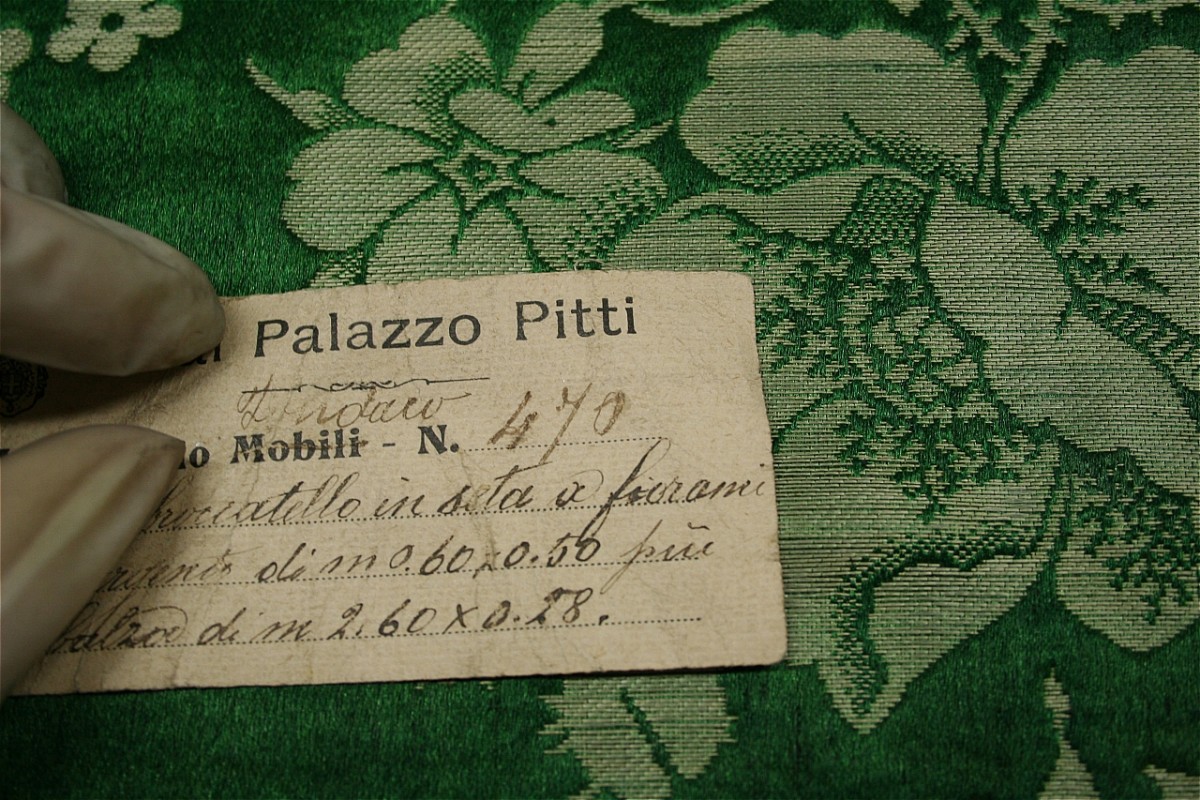 Palazzo Pitti
lo Mobili - N. 470
broccatello in seta a
di m 0.60 0.50 più
balza di m 2.60 x 0.28.